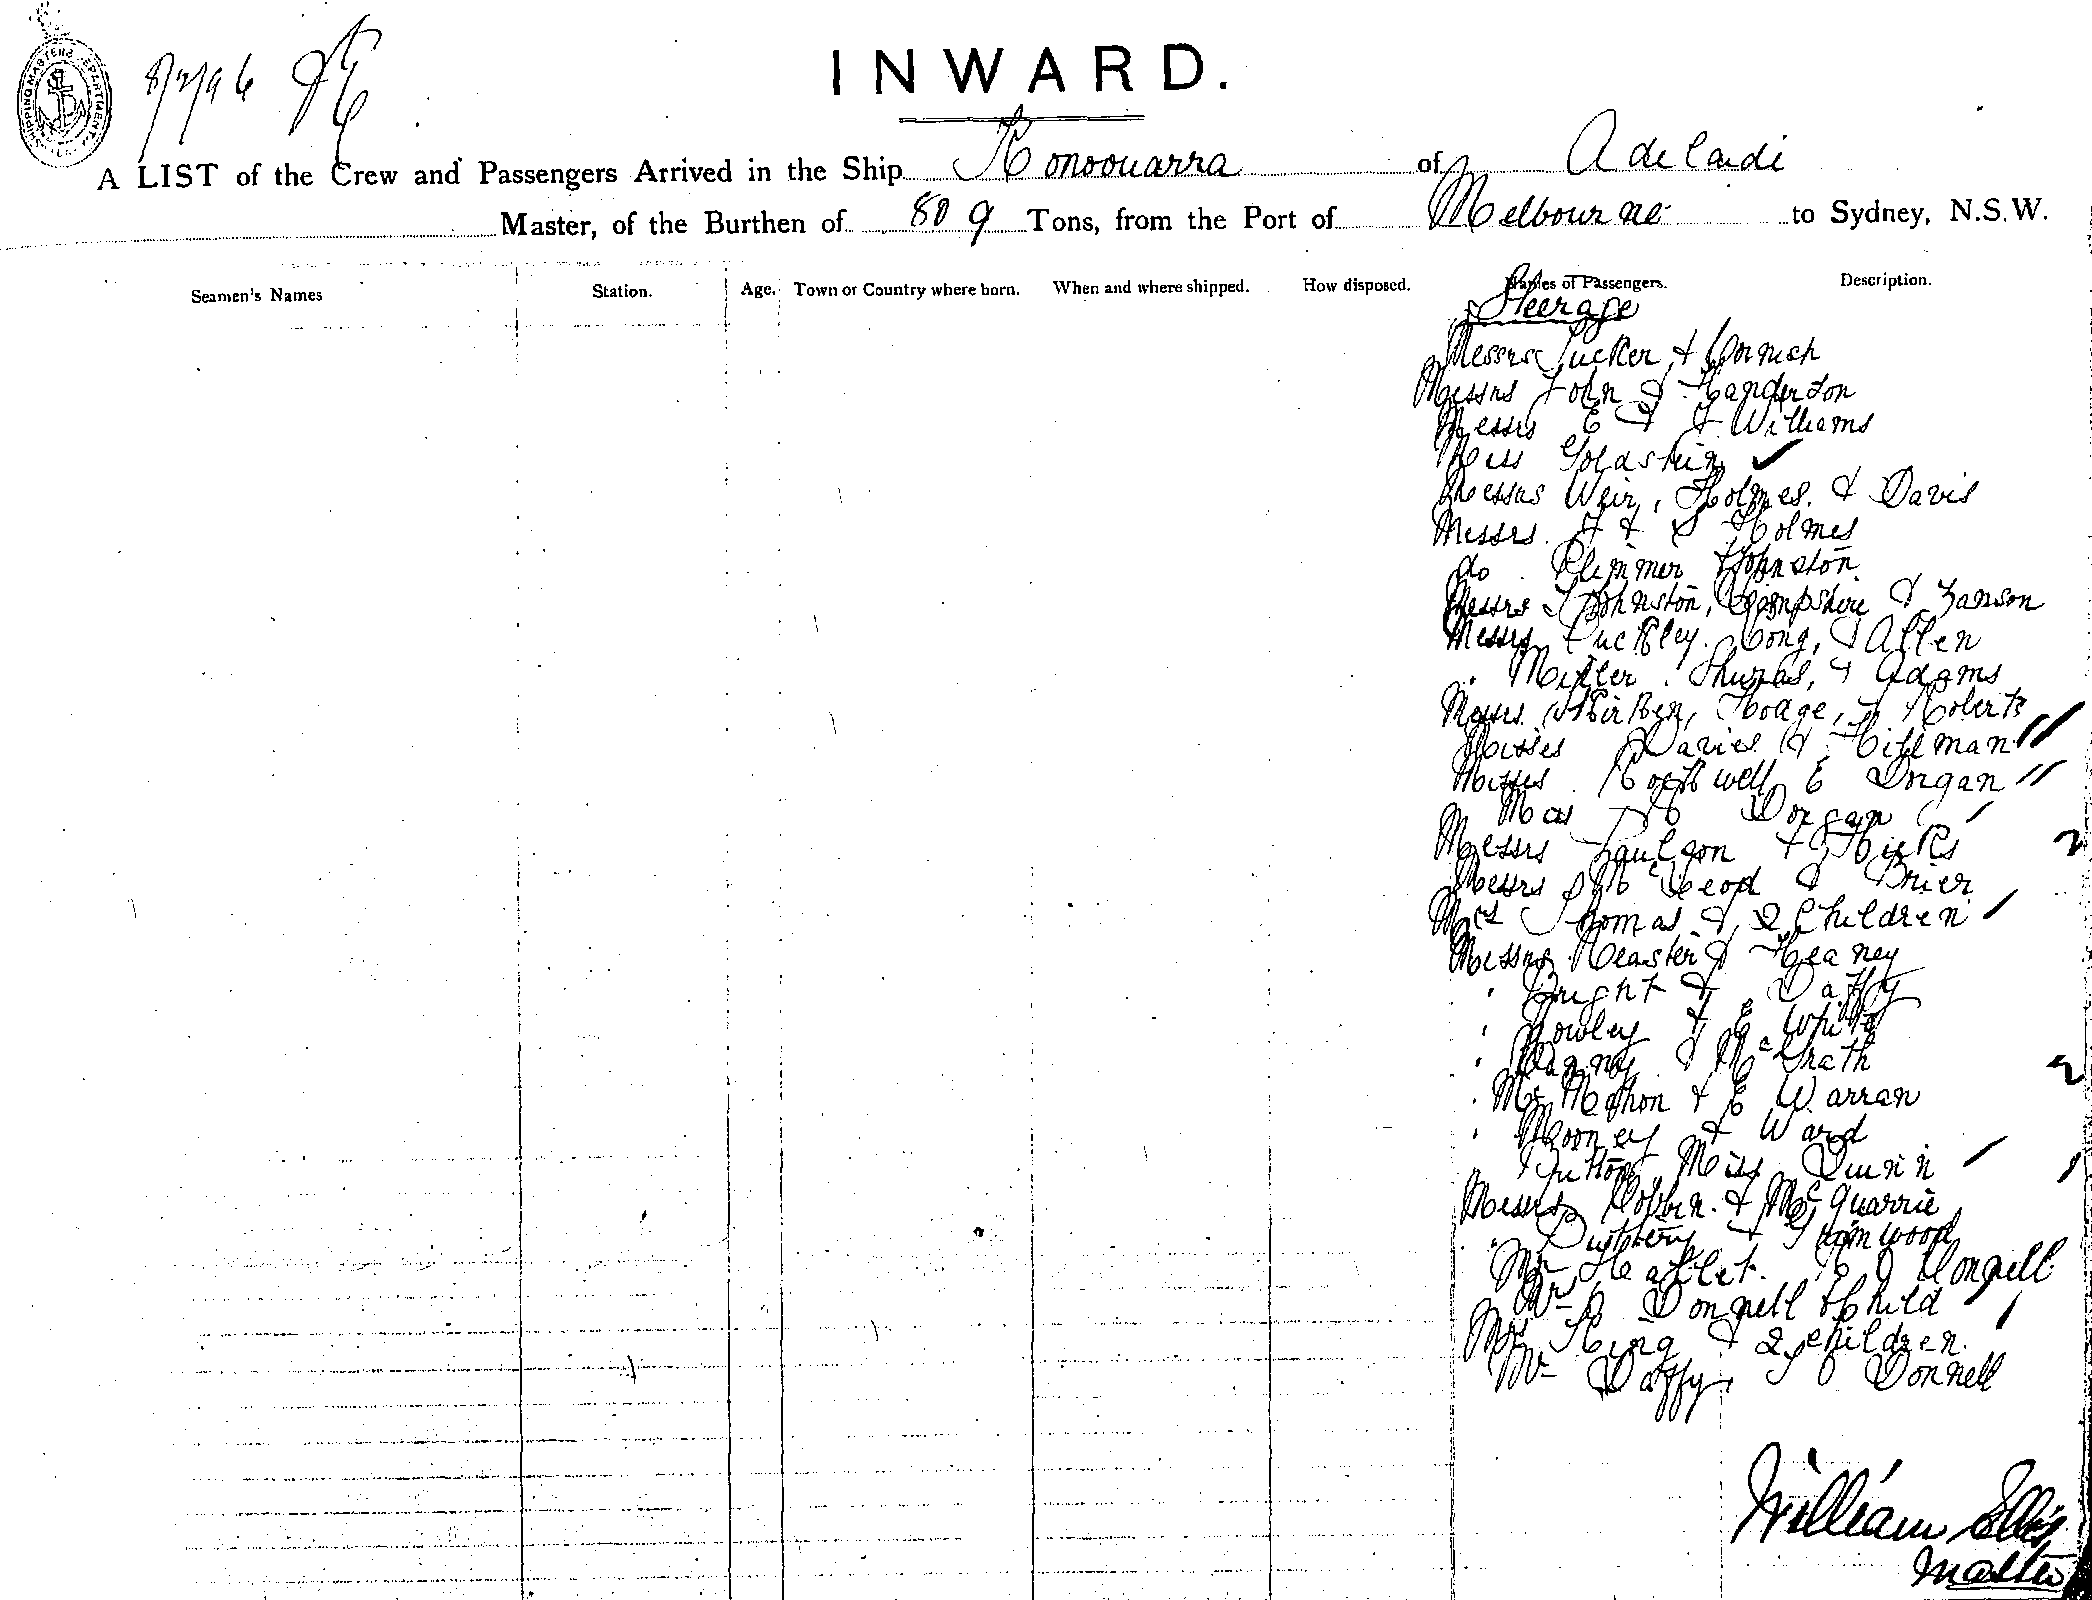 8/2/96
INWARD.
A LIST of the Crew and Passengers Arrived in the Ship Konoowarra of Adelaide
Master, of the Burthen of 809 Tons, from the Port of Melbourne to Sydney, N.S.W.
Seamen's Names Station. Age. Town or Country where born. When and where shipped. How disposed. Names of Passengers. Description.
Steerage
Messrs Tucker & Cornish
Messrs John &
Messrs E & J Williams
Miss Goldstein
Messrs Weir, Holmes. & Davis
Messrs. J & S Holmes
do Plimmer & Johnston
Messrs Johnston, Hampshire & Zanson
Messrs Puckley. Long, & Allen
Miller. Thomas, & Adams
Messrs. Kirken, Hodge, & Roberts
Misses Davies & Hillman
Misses Rothwell E Dorgan
Mas Dorgan
Messrs Paulson & Hicks
Messrs McLeod & Brier
Mrs Thomas & 2 Children
Messrs Measter & Heaney
Bright & Daffy
Rowley & E White
Danny & McGrath
McMahon & E Warran
Mooney & Ward
Hutton Miss Quinn
Messrs Dobbin. & McQuarrie
& Grimwood
Mr Hallet.
Donnell & Child
Mrs King & 2 children.
Mr Daffy, J O Donnell
William Ellis
Master